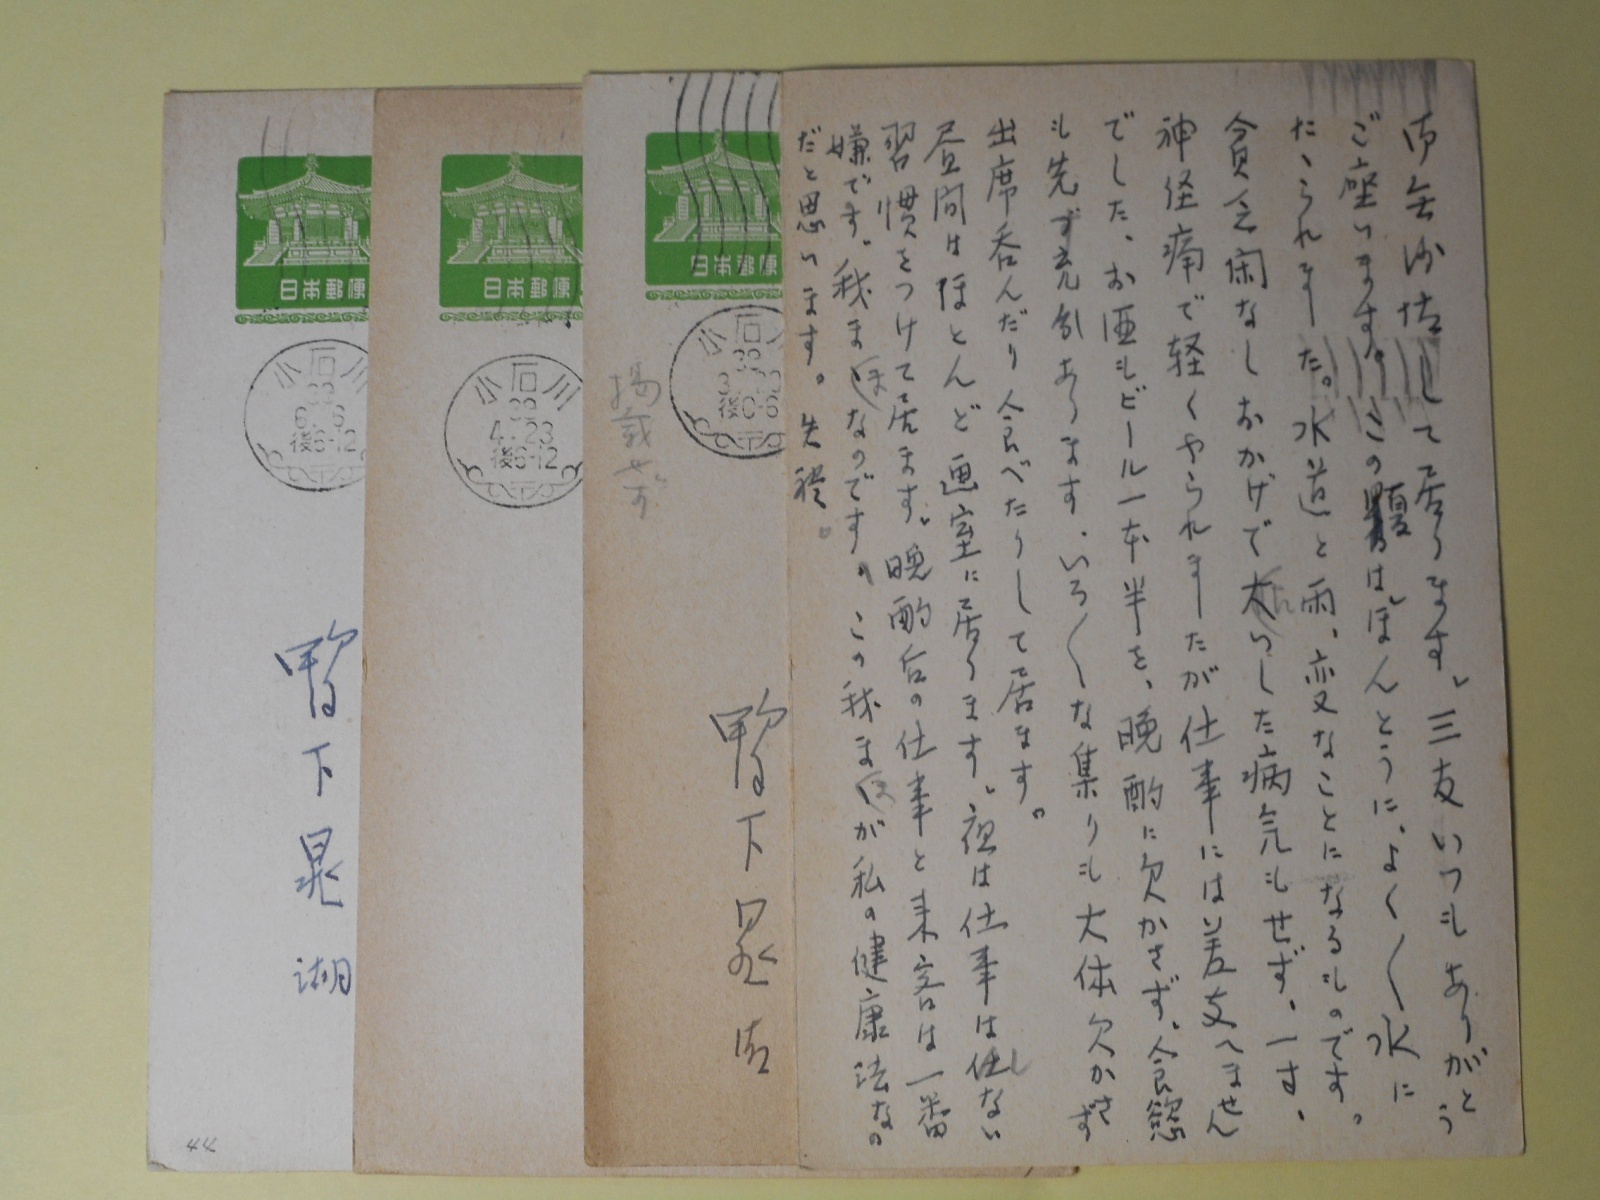 御無沙汰して居ります、三友いつもありがとう
ご座います。この夏は、ほんとうに、よく〱水に
たゝられました。水道と雨、変なことになるものです。
貧乏閑なしおかげで大した病気もせず、一寸、
神経痛で軽くやられましたが仕事には差支へません
でした、お酒もビール一本半を、晩酌に欠かさず、食慾
も先ず充分あります、いろ〱な集りも大体欠かさず
出席呑んだり食べたりして居ます。
昼間はほとんど画室に居ります、夜は仕事はしない
習慣をつけて居ます、晩酌后の仕事と来客は一番
嫌です。我まゝなのです。この我まゝが私の健康法なの
だと思います。失禮。
日本郵便
小石川
33
3.
後0-6
掲載せず
鴨下晁
日本郵便
小石川
33
4.23
後6-12
日本郵便
小石川
33
6.6
後6-12
鴨下晁湖
44